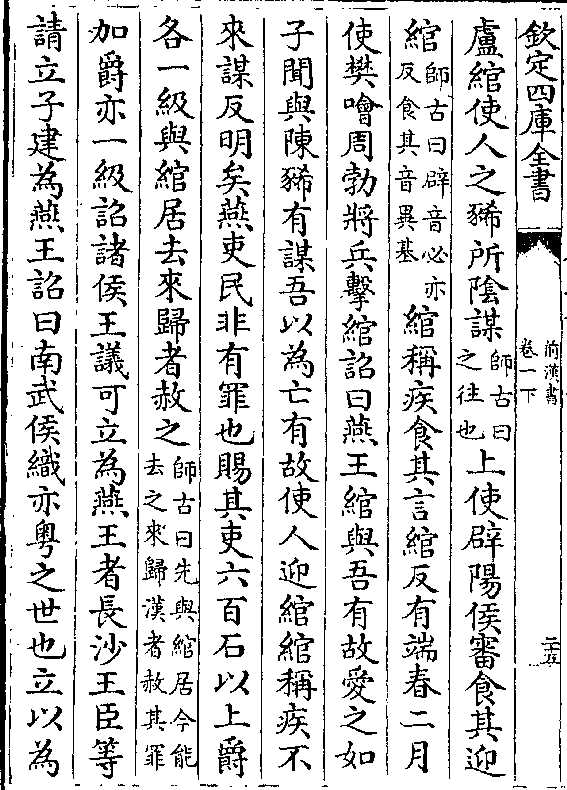 欽定四庫全書
前漢書
卷一下
二十五
盧綰使人之豨所陰謀師古曰之往也上使辟陽侯審食其迎
綰師古曰辟音必亦反食其音異基綰稱疾食其言綰反有端春二月
使樊噲周勃將兵擊綰詔曰燕王綰與吾有故愛之如
子聞與陳豨有謀吾以為亡有故使人迎綰綰稱疾不
來謀反明矣燕吏民非有罪也賜其吏六百石以上爵
各一級與綰居去來歸者赦之師古曰先與綰居今能去之來歸漢者赦其罪
加爵亦一級詔諸侯王議可立為燕王者長沙王臣等
請立子建為燕王詔曰南武侯織亦粵之世也立以為